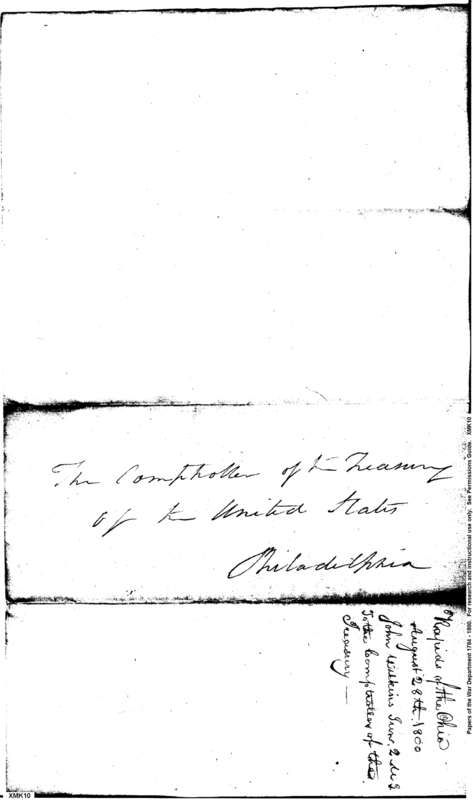 The Comptroller of the Treasury
of the United States
Philadelphia
Rapids of the Ohio
August 28th 1800
John Wilkins Junr. 2 M G
To the Comptroller of the
Treasury —
Papers of the War Department 1784 - 1800. For research and instructional use only. See Permissions Guide. XMK10
XMK10